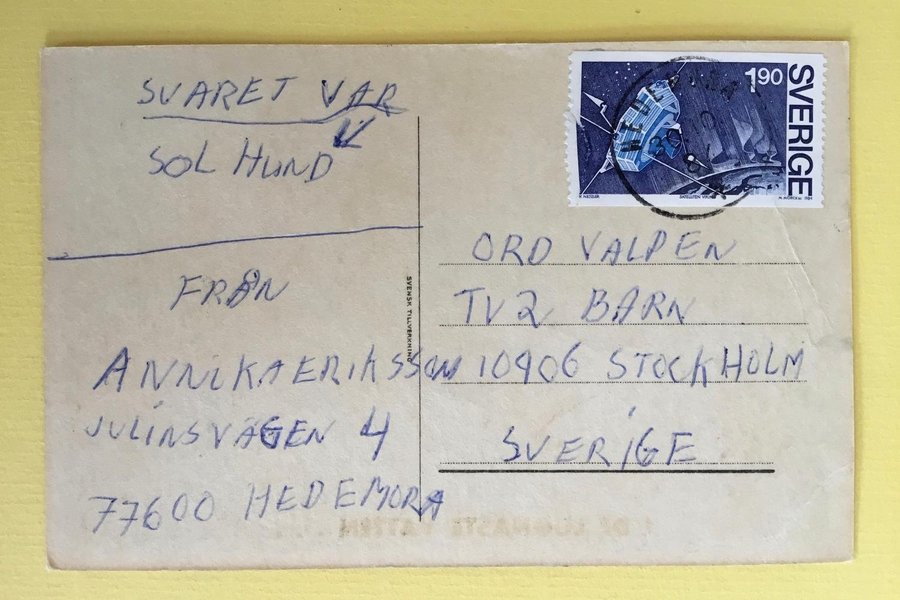 SVARET VAR
SOL HUND
FRÅN
ANNIKA ERIKSSON
JULINSVÄGEN 4
77600 HEDEMORA
SVENSK TILLVERKNING
1.90
SVERIGE
HEDEMORA 1
ORD VALPEN
TV2 BARN
10906 STOCKHOLM
SVERIGE